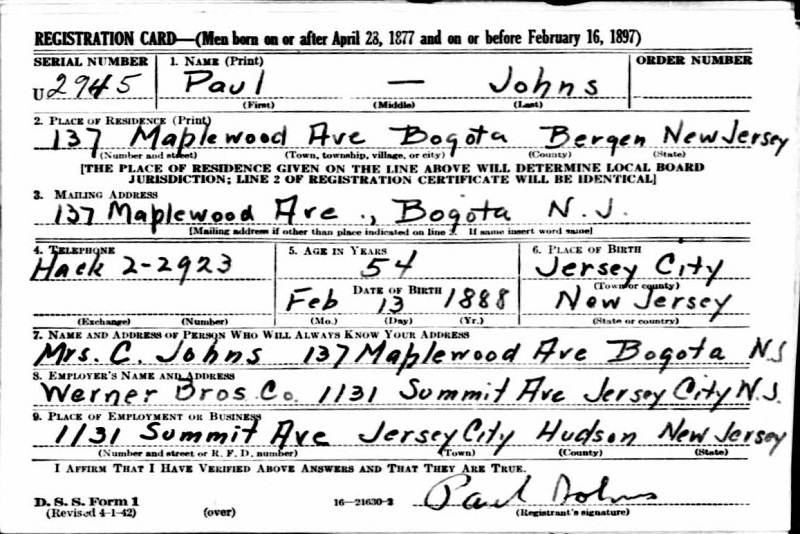 REGISTRATION CARD—(Men born on or after April 28, 1877 and on or before February 16, 1897)
SERIAL NUMBER 1. NAME (Print) ORDER NUMBER
U 2945 Paul — Johns
(First) (Middle) (Last)
2. PLACE OF RESIDENCE (Print)
137 Maplewood Ave Bogota Bergen New Jersey
(Number and street) (Town, township, village, or city) (County) (State)
[THE PLACE OF RESIDENCE GIVEN ON THE LINE ABOVE WILL DETERMINE LOCAL BOARD
JURISDICTION; LINE 2 OF REGISTRATION CERTIFICATE WILL BE IDENTICAL]
3. MAILING ADDRESS
137 Maplewood Ave., Bogota N.J.
[Mailing address if other than place indicated on line 2. If same insert word same]
4. TELEPHONE 5. AGE IN YEARS 6. PLACE OF BIRTH
Hack 2-2923 54 Jersey City
(Town or county)
DATE OF BIRTH
Feb 13 1888 New Jersey
(Exchange) (Number) (Mo.) (Day) (Yr.) (State or country)
7. NAME AND ADDRESS OF PERSON WHO WILL ALWAYS KNOW YOUR ADDRESS
Mrs. C. Johns 137 Maplewood Ave Bogota NJ
8. EMPLOYER'S NAME AND ADDRESS
Werner Bros. Co. 1131 Summit Ave Jersey City N.J.
9. PLACE OF EMPLOYMENT OR BUSINESS
1131 Summit Ave Jersey City Hudson New Jersey
(Number and street or R. F. D. number) (Town) (County) (State)
I AFFIRM THAT I HAVE VERIFIED ABOVE ANSWERS AND THAT THEY ARE TRUE.
Paul Johns
D. S. S. Form 1 16—21630-2
(Revised 4-1-42) (over) (Registrant's signature)